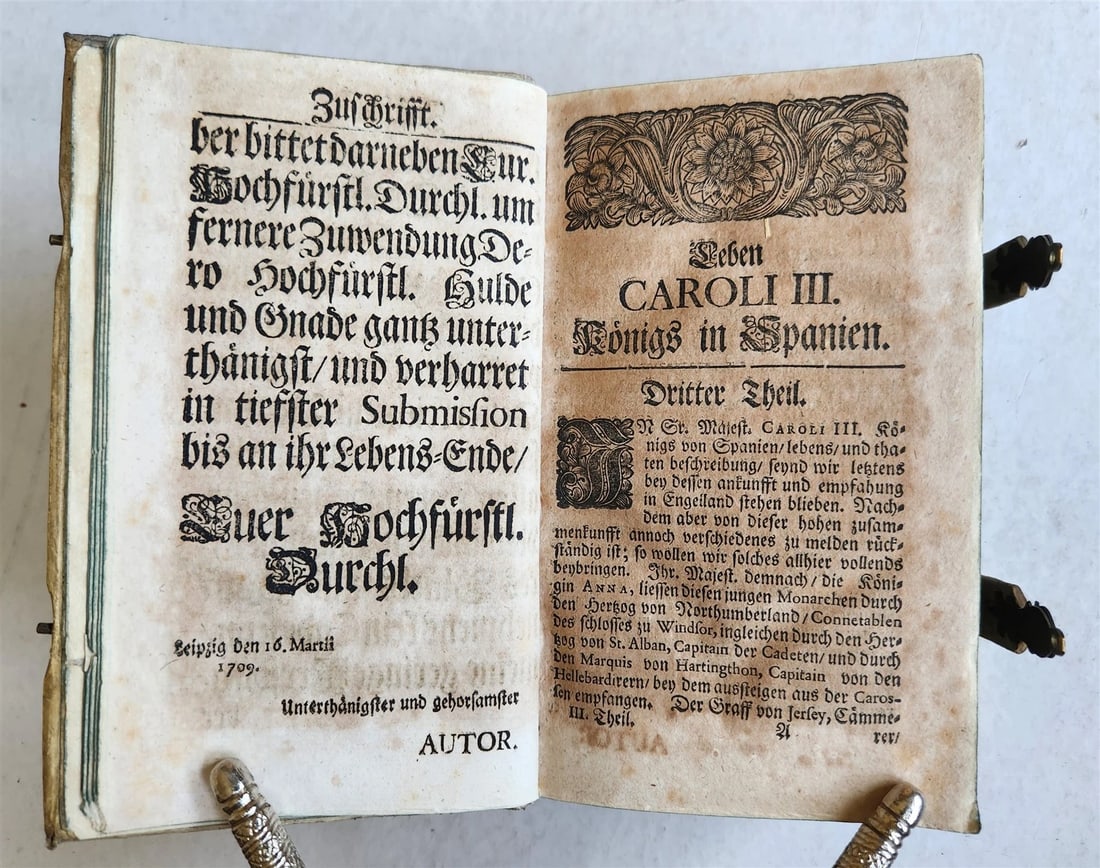 Zuschrifft.
ber bittet darneben Eur.
Hochfürstl. Durchl. um
fernere Zuwendung De-
ro Hochfürstl. Hulde
und Gnade gantz unter-
thänigst/ und verharret
in tieffster Submission
bis an ihr Lebens-Ende/
Euer Hochfürstl.
Durchl.
Leipzig den 16. Martii
1709.
Unterthänigster und gehorsamster
AUTOR.
Leben
CAROLI III.
Königs in Spanien.
Dritter Theil.
IN Sr. Majest. CAROLI III. Kö-
nigs von Spanien/ lebens/ und tha-
ten beschreibung/ seynd wir letztens
bey dessen ankunfft und empfahung
in Engelland stehen blieben. Nach-
dem aber von dieser hohen zusam-
menkunfft annoch verschiedenes zu melden rück-
ständig ist; so wollen wir solches allhier vollends
beybringen. Ihr. Majest. demnach/ die Köni-
gin ANNA, liessen diesen jungen Monarchen durch
den Hertzog von Northumberland/ Connetablen
des schlosses zu Windsor, ingleichen durch den Her-
tzog von St. Alban, Capitain der Cadeten/ und durch
den Marquis von Hartingthon, Capitain von den
Hellebardirern/ bey dem aussteigen aus der Caros-
sen empfangen. Der Graff von Jersey, Cämme-
III. Theil. A rer/